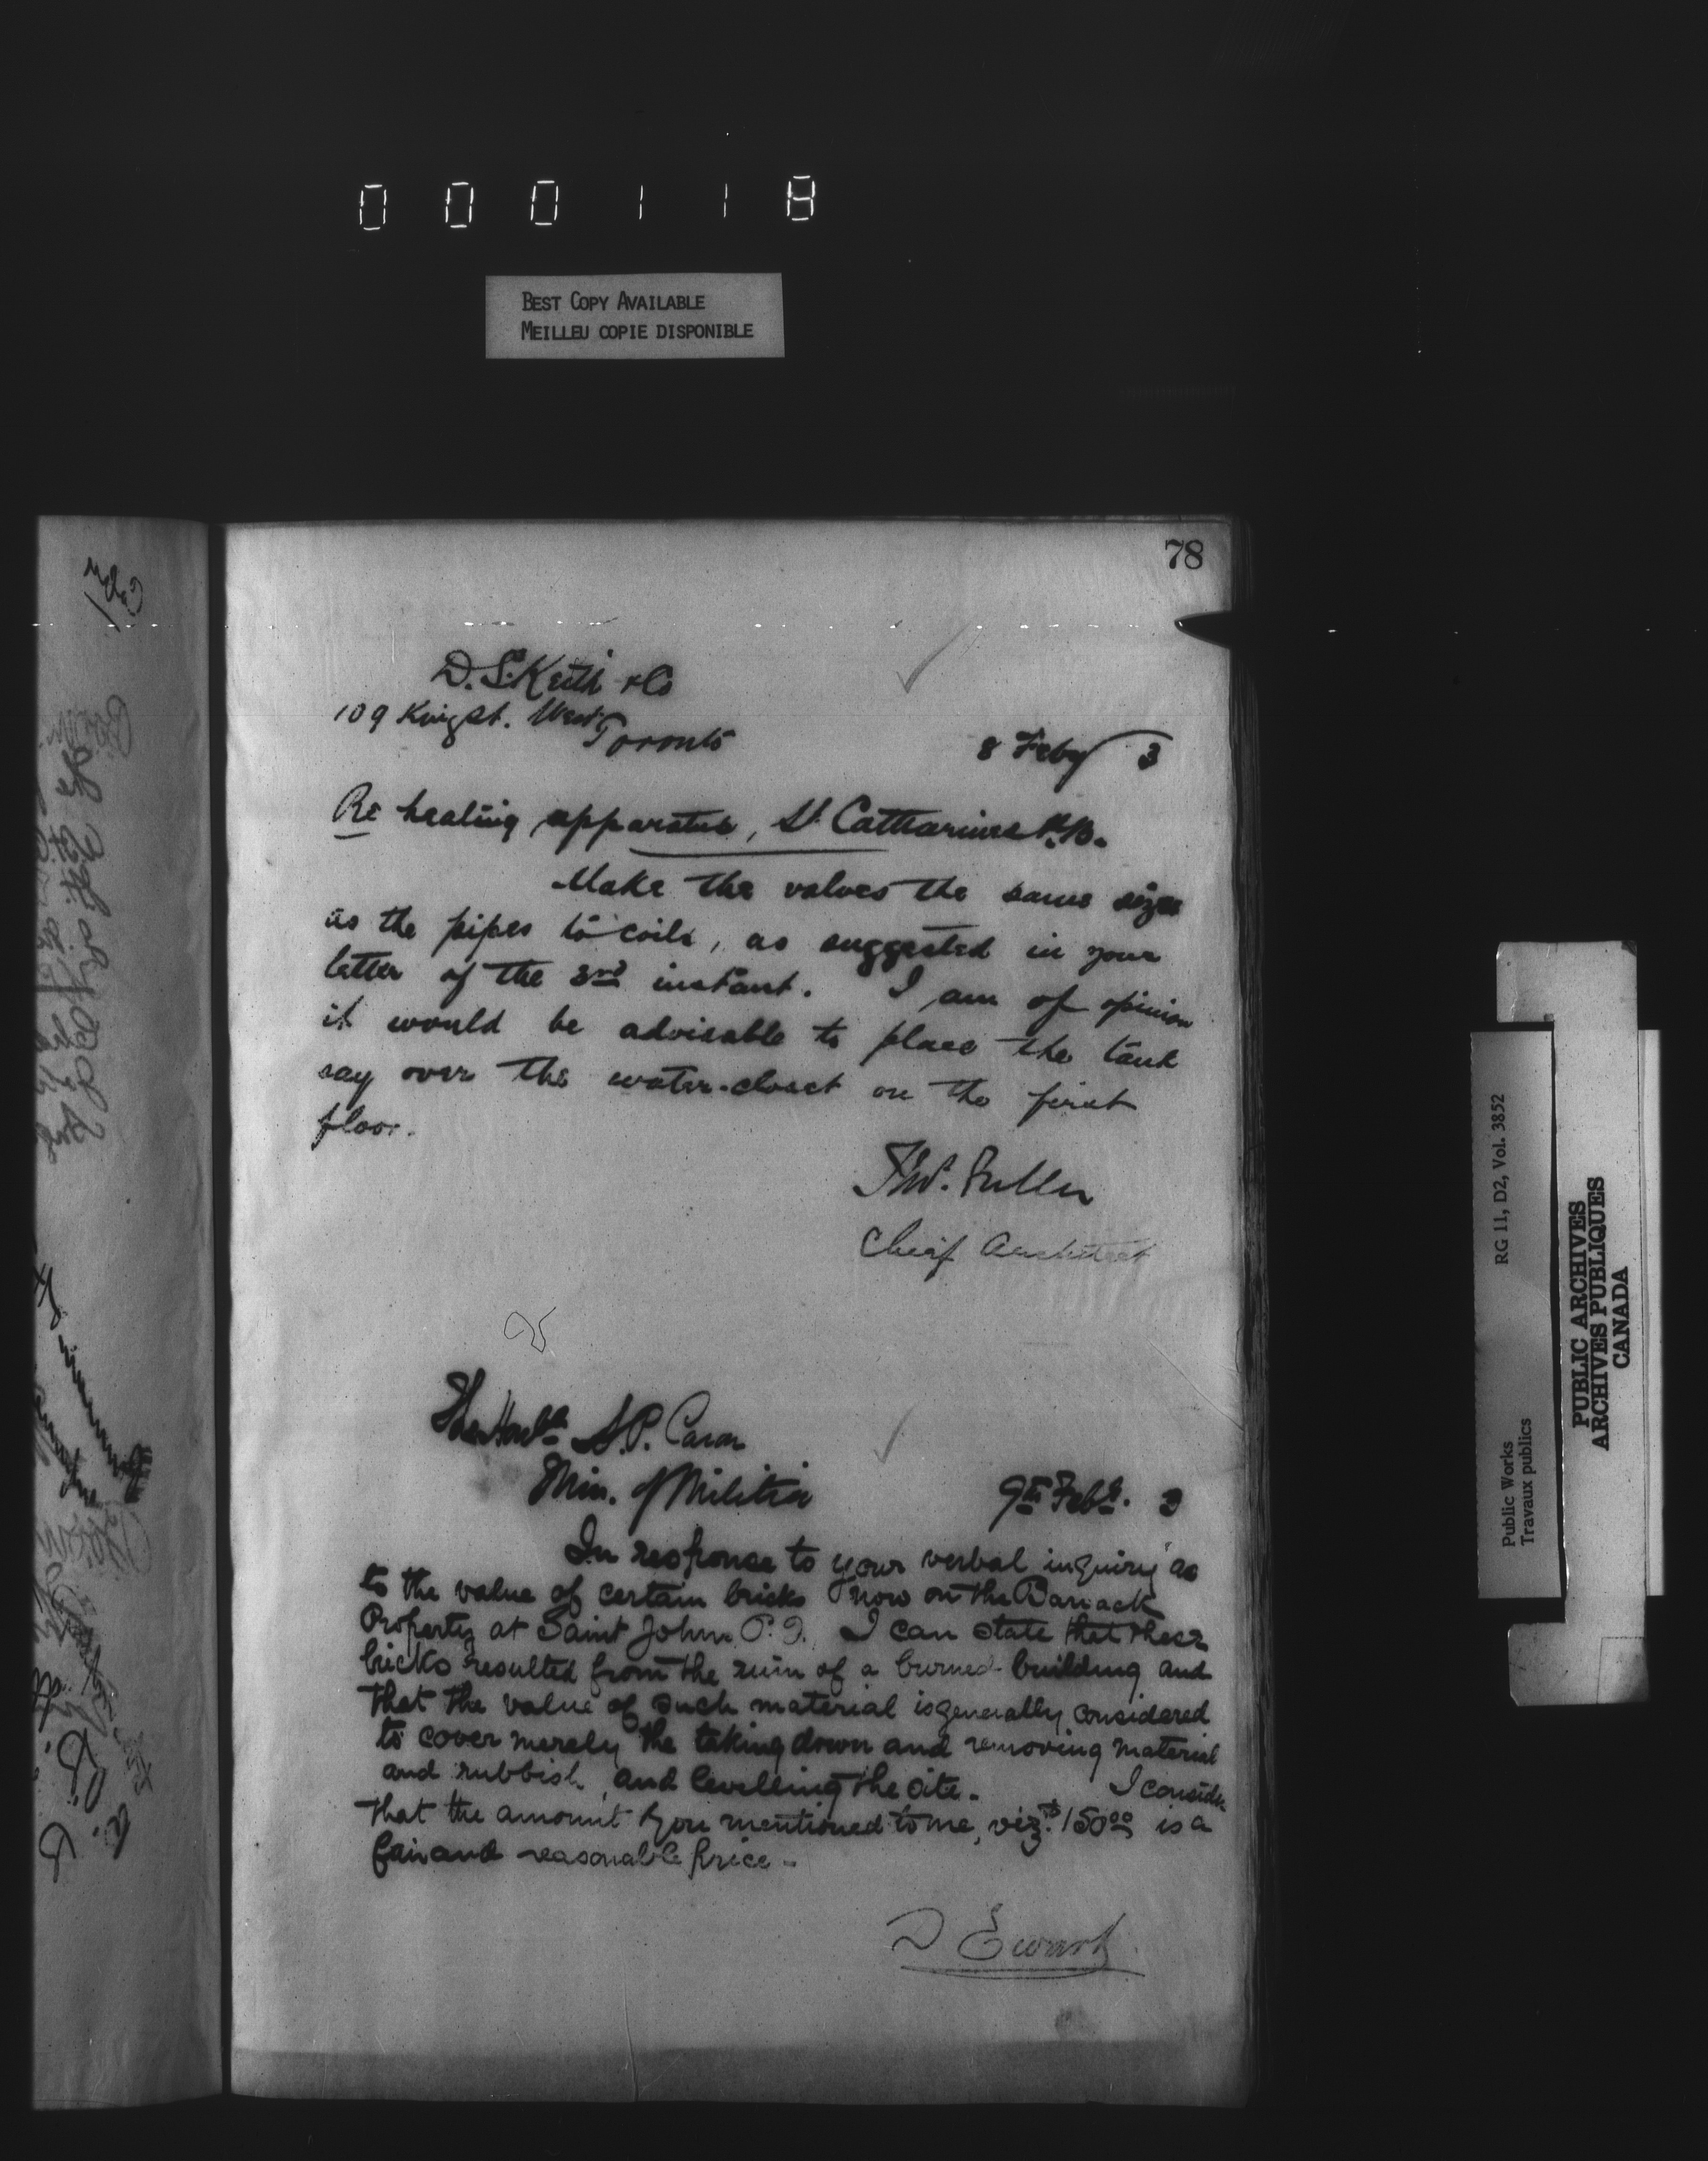 000118
BEST COPY AVAILABLE
MEILLEU COPIE DISPONIBLE
78
D. S. Keith & Co
109 King St. West
Toronto
8 Feby 3
Re heating apparatus, St Catharines P.B.
Make the valves the same size
as the pipes to coils, as suggested in your
letter of the 3rd instant. I am of opinion
it would be advisable to place the tank
say over the water-closet on the first
floor.
Thos. Fuller
Chief Architect
The Honble A.P. Caron
Min. of Militia
9th Feby. 3
In response to your verbal inquiry as
to the value of certain bricks now on the Barrack
Property at Saint Johns P.Q. I can state that these
bricks resulted from the ruin of a burned building and
that the value of such material is generally considered
to cover merely the taking down and removing material
and rubbish, and levelling the site. I consider
that the amount you mentioned to me, viz: $150.00 is a
fair and reasonable price.
D Ewart
RG 11, D2, Vol. 3852
Public Works
Travaux publics
PUBLIC ARCHIVES
ARCHIVES PUBLIQUES
CANADA